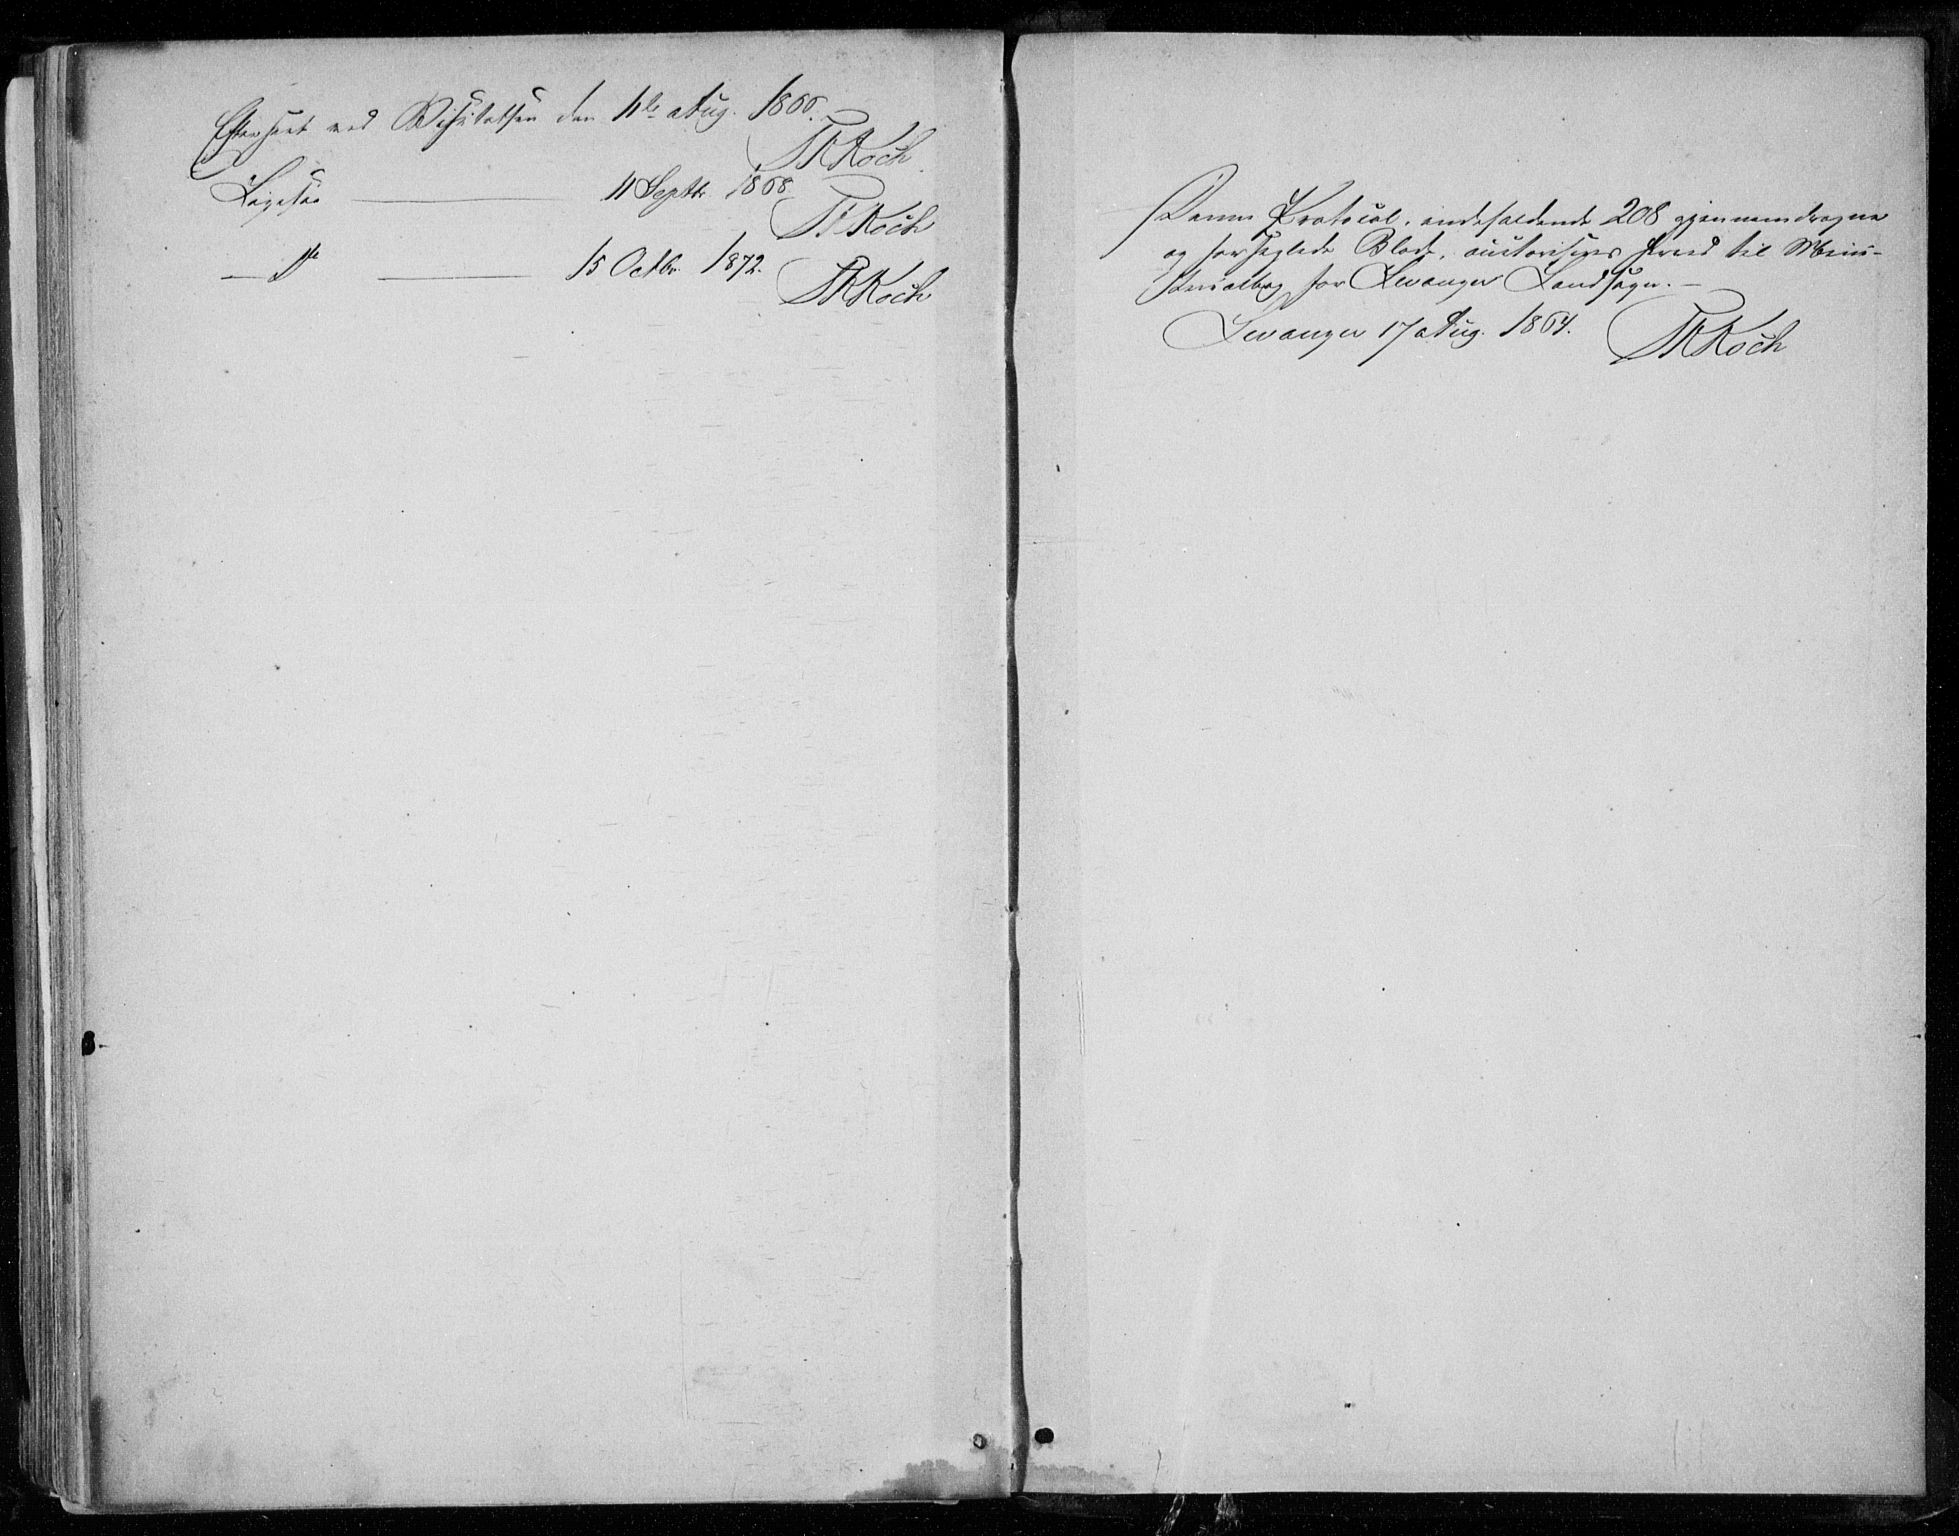 Efterseet ved Visitatsen den 11te Aug. 1866.
FRKoch
Ligesaa ——— 11 Septbr 1868.
FRKoch
— Do ——— 15 Octbr. 1872.
FRKoch
Denne Protocol, indeholdende 208 gjennemdragne
og forseglede Blade, autoriseres herved til Mini-
sterialbog for Levanger Landsogn. —
Levanger 17 Aug. 1864.
FRKoch